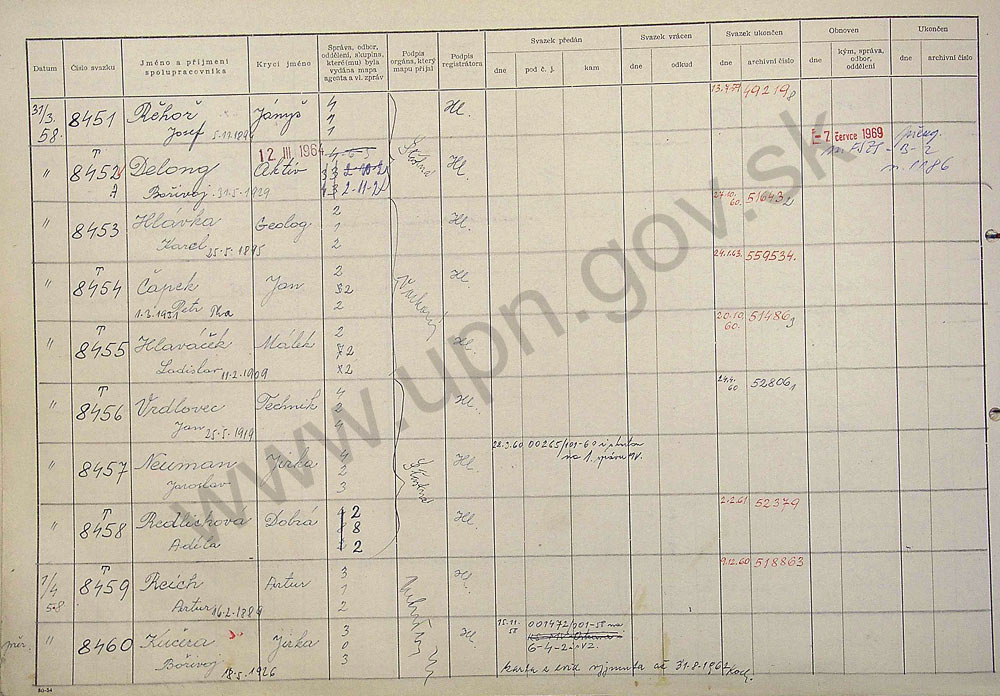 Datum
Číslo svazku
Jméno a příjmení spolupracovníka
Krycí jméno
Správa, odbor, oddělení, skupina, které(mu) byla vydána mapa agenta a vl. zpráv
Podpis orgána, který mapu přijal
Podpis registrátora
Svazek předán
dne
pod č. j.
kam
Svazek vrácen
dne
odkud
Svazek ukončen
dne
archivní číslo
Obnoven
dne
kým, správa, odbor, oddělení
Ukončen
dne
archivní číslo
31/3. 58.
8451
Řěhoř
Josef
Jányš
4
1
Hl.
49219
8
"
T
8452
A
Delong
Bořivoj 31.5.1929
12 III 1964
Aktiv
3 3 2-10-2
4 3 2-11-2
Hl.
-7. července 1969
B-2
"
8453
Hlávka
Karel 25.5.1895
Geolog
2
1
2
Hl.
27.10. 60.
51643
2
"
T
8454
Čapek
1.3.1931 Petr
Jan
2
2
2
Hl.
24.1.63.
559534.
"
T
8455
Hlaváček
Ladislav 11.2.1909
Málek
2
2
2
Hl.
20.10. 60.
51486
3
"
T
8456
Vrdlovec
Jan 25.5.1919
Technik
4
2
4
Hl.
24.4. 60
52806
1
"
8457
Neuman
Jaroslav
Jirka
4
2
3
Hl.
28.3.60 00265/101-60
na 1. správu MV.
"
T
8458
Redlichova
Adéla
Dobrá
2
8
2
Hl.
2.2.61
52379
1/4 58
T
8459
Reich
Artur 16.2.1889
Artur
3
1
2
Hl.
9.12.60
518863
"
8460
Kučera
Bořivoj
18.5.1926
Jirka
3
0
3
Hl.
15.11. 58
001472/101-58 na
6-4-2
karta z evid vyjmuta až 31.8.1962
80-54
www.upn.gov.sk